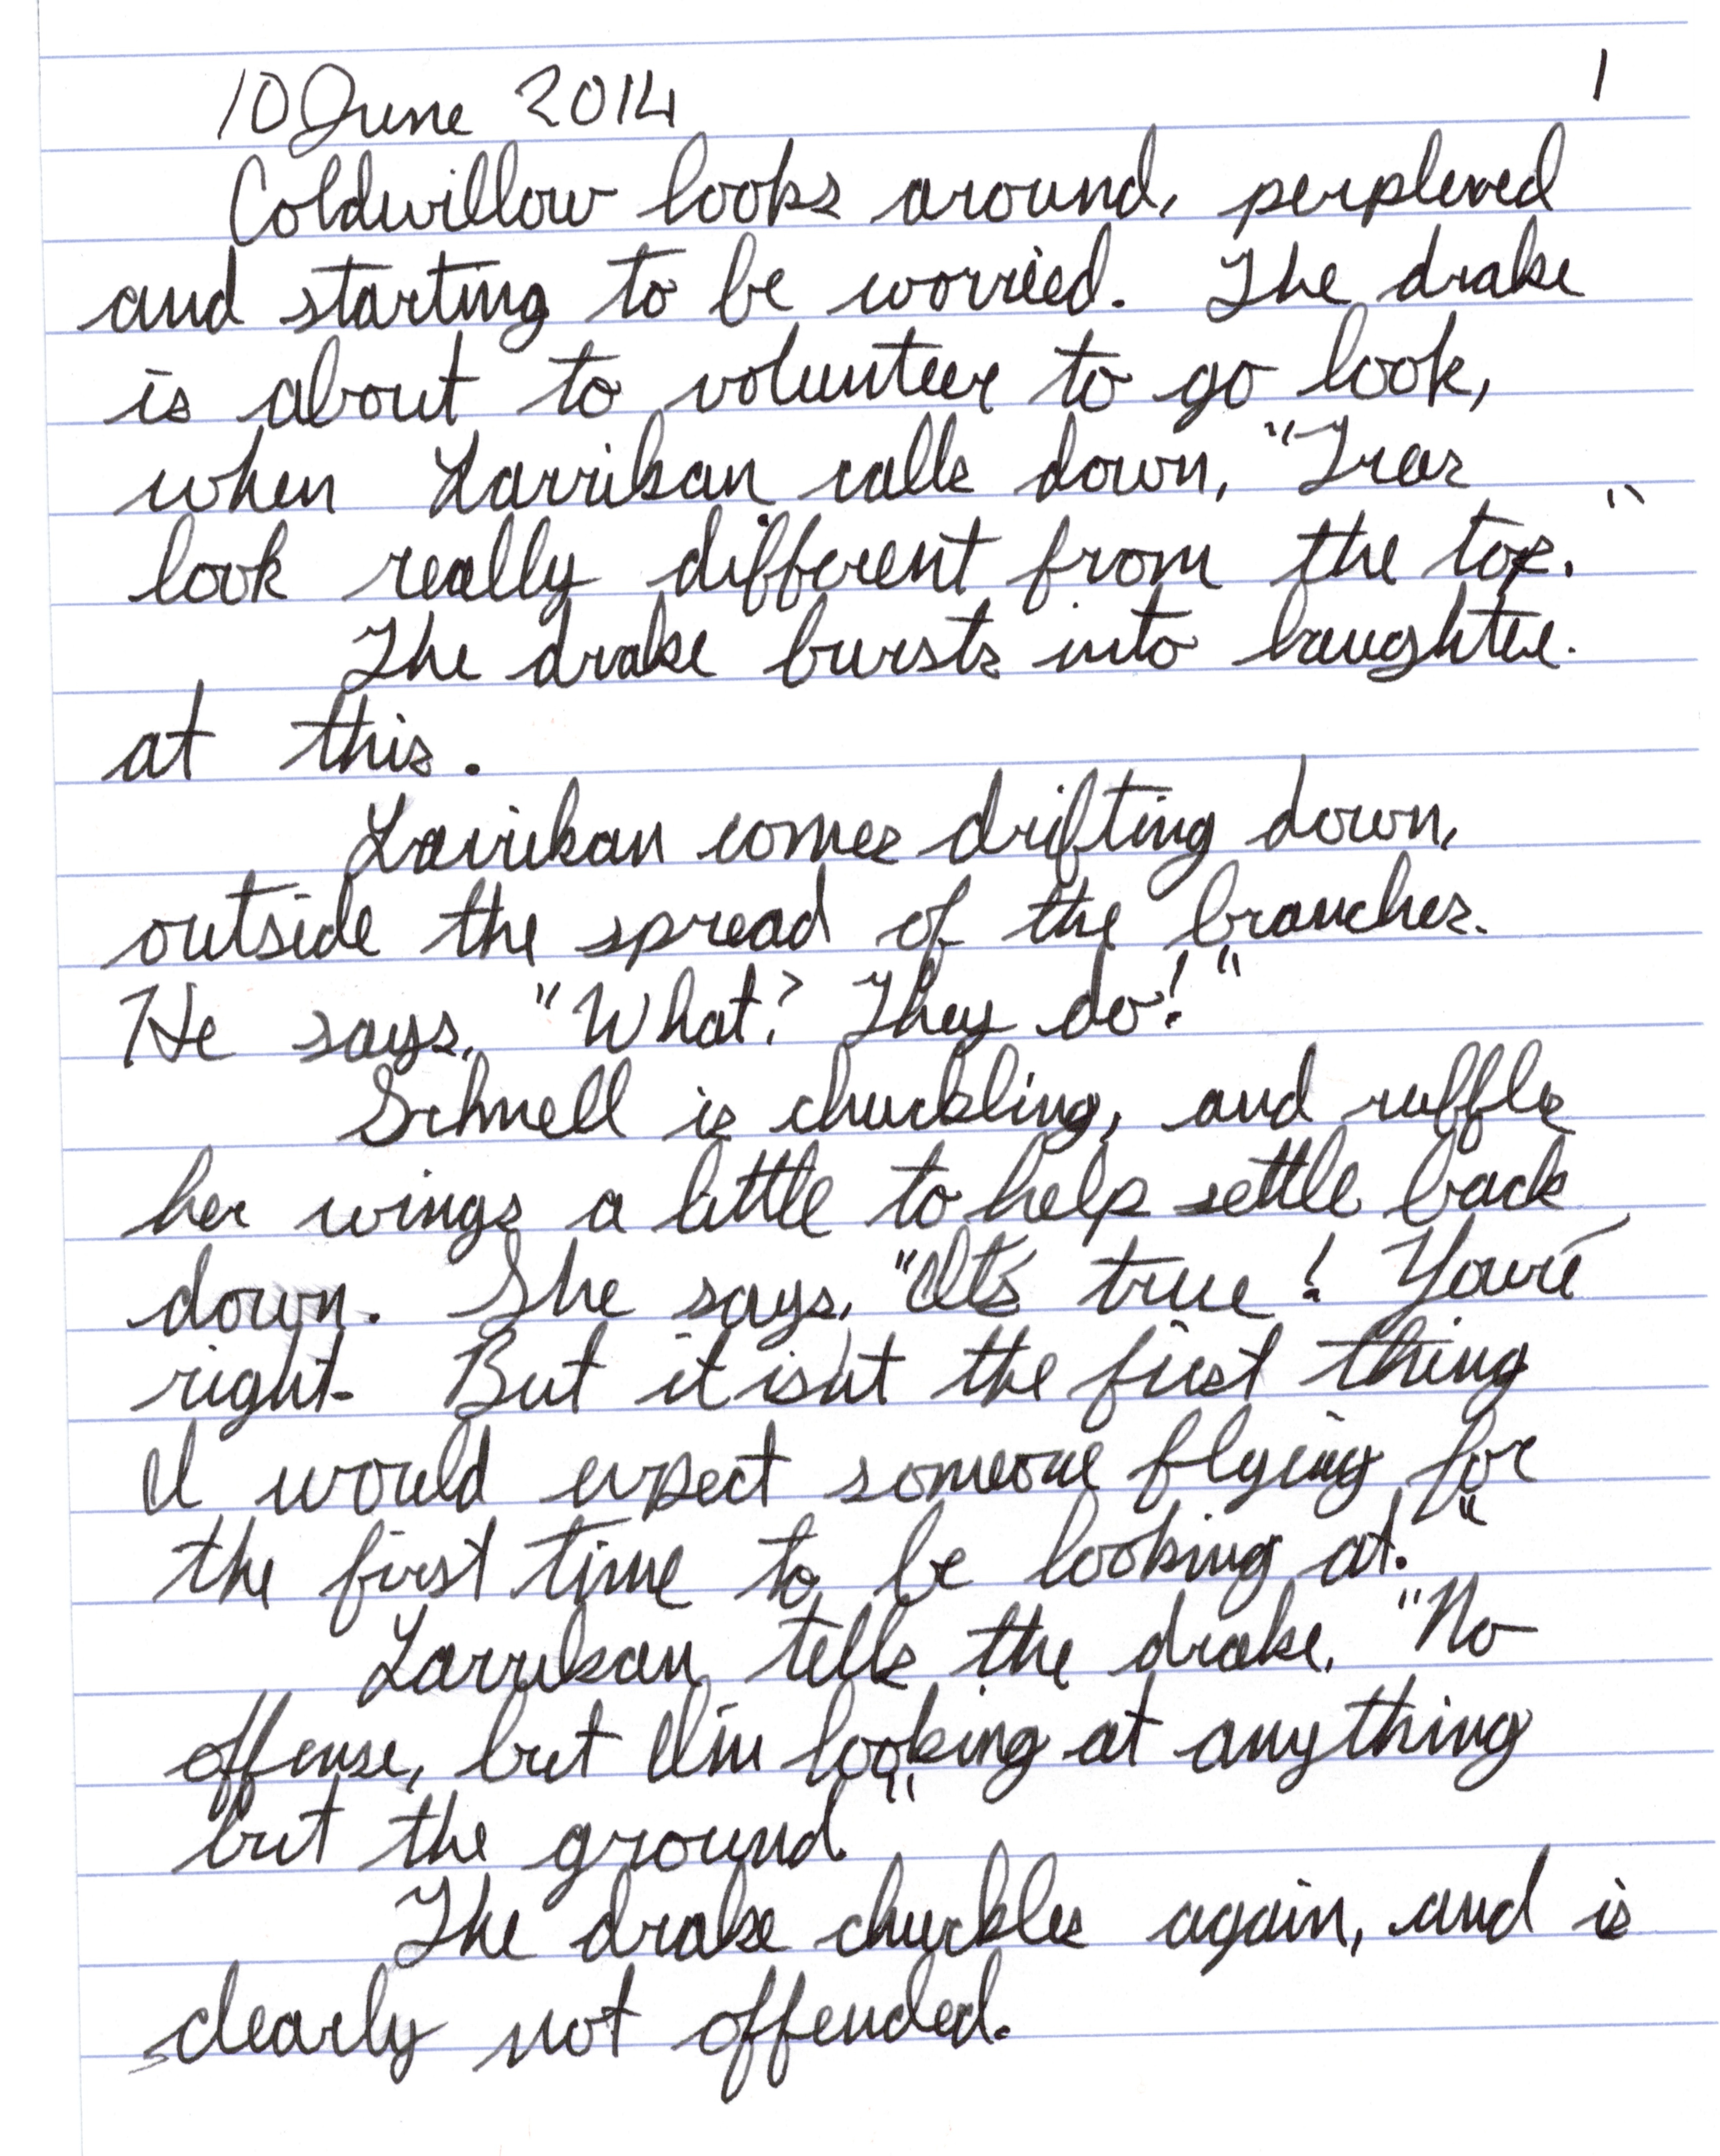 10 June 2014 1
Coldwillow looks around, perplexed
and starting to be worried. The drake
is about to volunteer to go look,
when Larrikan calls down, "Trees
look really different from the top."
The drake bursts into laughter.
at this.
Larrikan comes drifting down,
outside the spread of the branches.
He says, "What? They do!"
Schnell is chuckling, and ruffles
her wings a little to help settle back
down. She says, "It's true! You're
right. But it isn't the first thing
I would expect someone flying for
the first time to be looking at."
Larrikan tells the drake, "No
offense, but I'm looking at anything
but the ground."
The drake chuckles again, and is
clearly not offended.